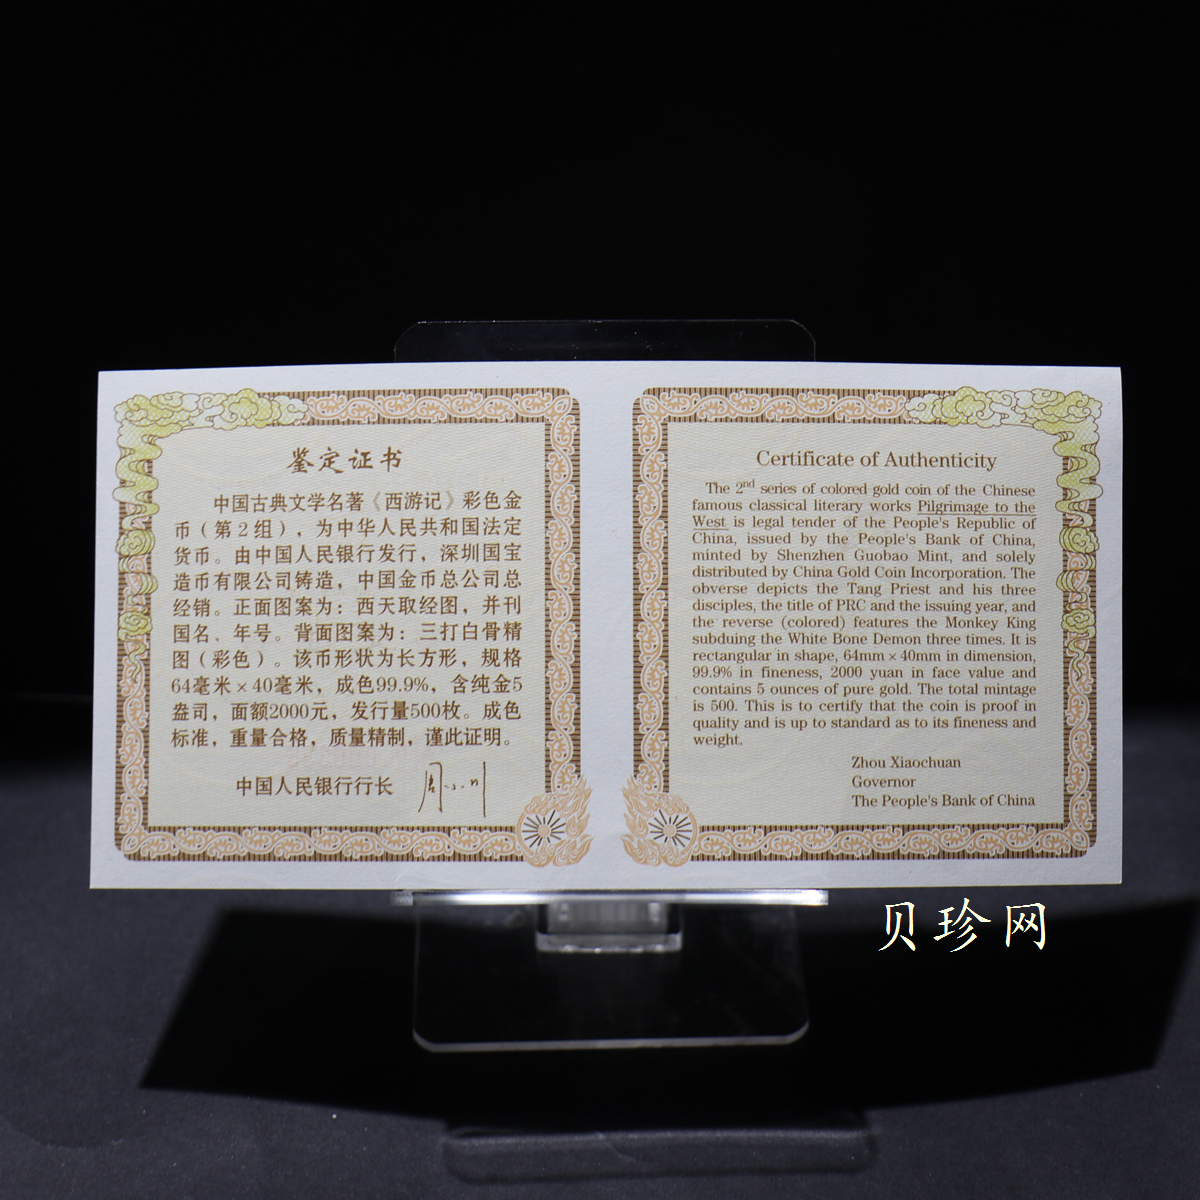 鉴定证书
中国古典文学名著《西游记》彩色金
币（第2组），为中华人民共和国法定
货币。由中国人民银行发行，深圳国宝
造币有限公司铸造，中国金币总公司总
经销。正面图案为：西天取经图，并刊
国名、年号。背面图案为：三打白骨精
图（彩色）。该币形状为长方形，规格
64毫米×40毫米，成色99.9%，含纯金5
盎司，面额2000元，发行量500枚。成色
标准，重量合格，质量精制，谨此证明。
中国人民银行行长 周小川
Certificate of Authenticity
The 2nd series of colored gold coin of the Chinese
famous classical literary works Pilgrimage to the
West is legal tender of the People's Republic of
China, issued by the People's Bank of China,
minted by Shenzhen Guobao Mint, and solely
distributed by China Gold Coin Incorporation. The
obverse depicts the Tang Priest and his three
disciples, the title of PRC and the issuing year, and
the reverse (colored) features the Monkey King
subduing the White Bone Demon three times. It is
rectangular in shape, 64mm×40mm in dimension,
99.9% in fineness, 2000 yuan in face value and
contains 5 ounces of pure gold. The total mintage
is 500. This is to certify that the coin is proof in
quality and is up to standard as to its fineness and
weight.
Zhou Xiaochuan
Governor
The People's Bank of China
贝珍网